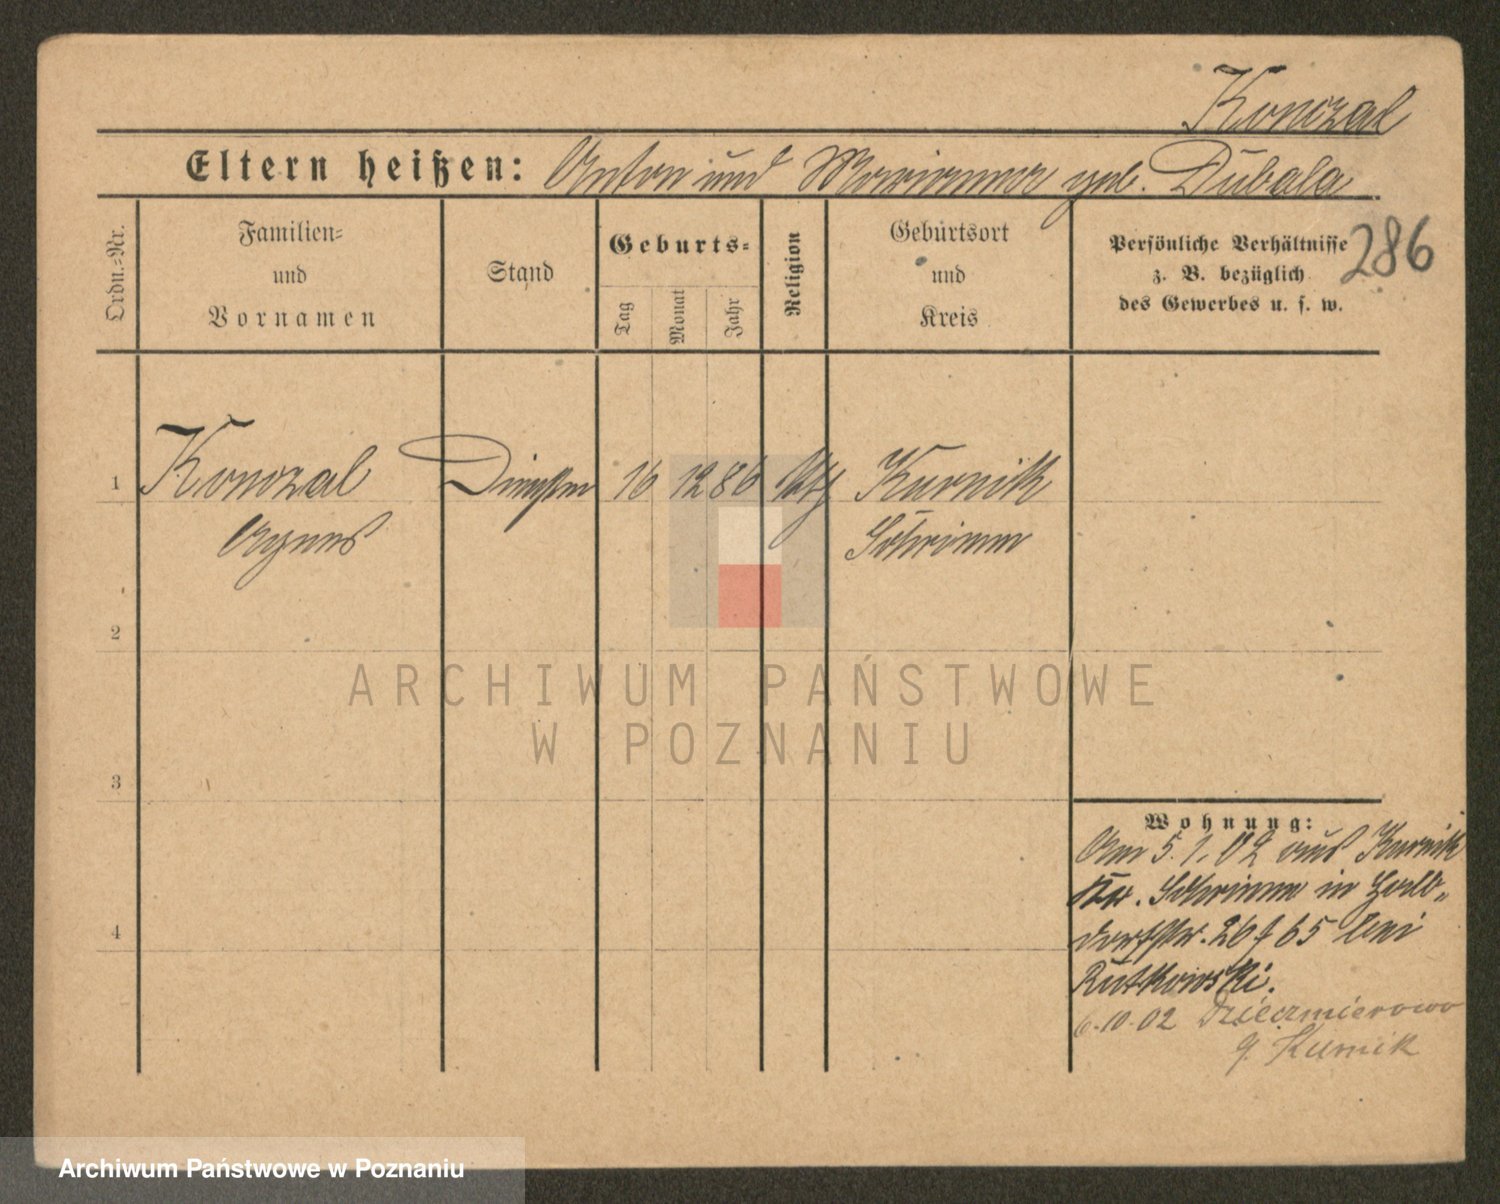 Konczal
Eltern heißen: Anton und Marianna geb. Dubala
Ordn.-Nr.
Familien-
und
Vornamen
Stand
Geburts-
Tag
Monat
Jahr
Religion
Geburtsort
und
Kreis
Persönliche Verhältnisse
z. B. bezüglich
des Gewerbes u. s. w.
286
1 Konczal 16 12 86 kth Kurnik
Agnes Schrimm
2
ARCHIWUM PAŃSTWOWE
W POZNANIU
3
Wohnung:
Am 5.1.02 aus Kurnik
Kr. Schrimm in
26 f 65 bei
Rutkowski.
6.10.02 Dzieczmierowo
b. Kurnik
4
Archiwum Państwowe w Poznaniu